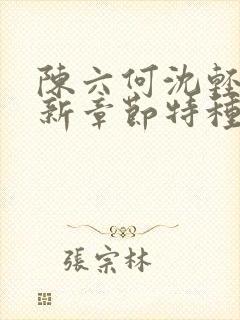 陳六何沈輕
新章節特種
張宗林